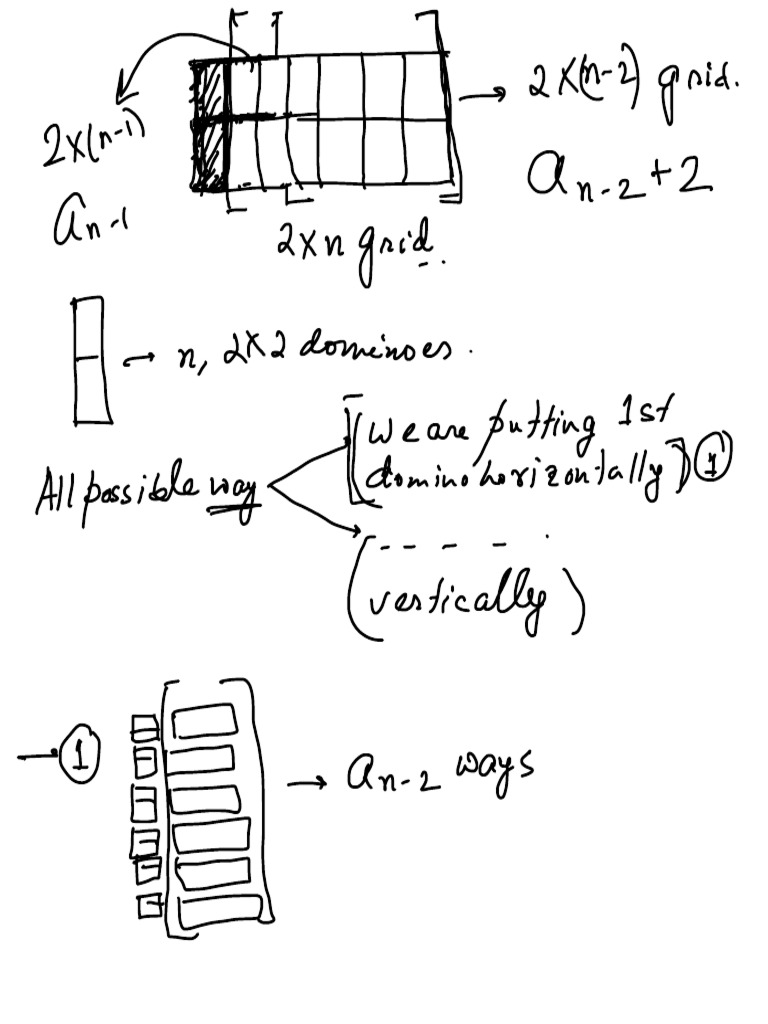 2×(n-1)
a n-1
→ 2×(n-2) grid.
a n-2 + 2
2×n grid.
→ n, 2×2 dominoes.
All possible way
[(we are putting 1st
domino horizontally)] ①
(---- .
vertically)
— ①
→ a n-2 ways